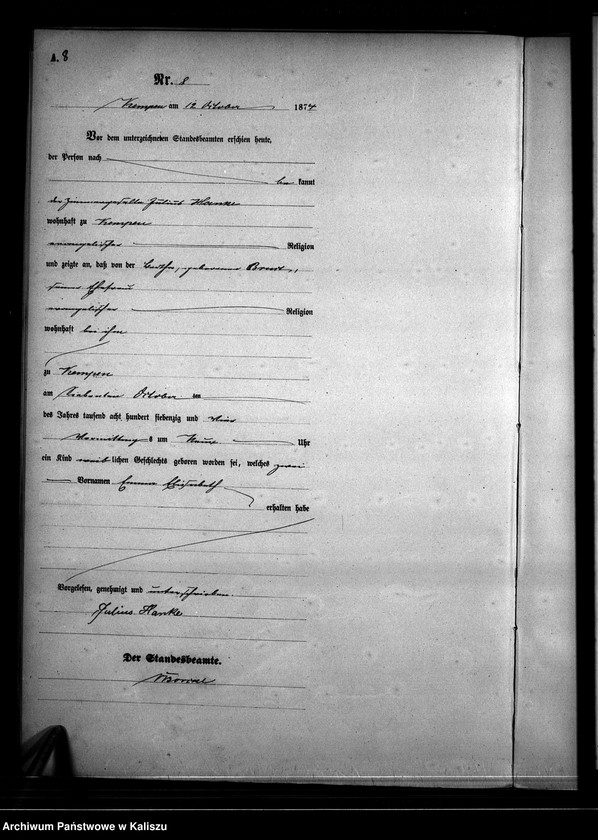 A. 8
Nr. 8
Kempen am 12 October 1874
Vor dem unterzeichneten Standesbeamten erschien heute,
der Person nach
be kannt
der Zimmergeselle Julius Hanke
wohnhaft zu Kempen
evangelischer Religion
und zeigte an, daß von der Bertha, geborenen
seiner Ehefrau
evangelischer Religion
wohnhaft bei ihm
zu Kempen
am siebenten October
des Jahres tausend acht hundert siebenzig und vier
Vormittags um Neun Uhr
ein Kind weiblichen Geschlechts geboren worden sei, welches zwei
Vornamen Emma Elisabeth
erhalten habe
Vorgelesen, genehmigt und unterschrieben
Julius Hanke
Der Standesbeamte.
Archiwum Państwowe w Kaliszu